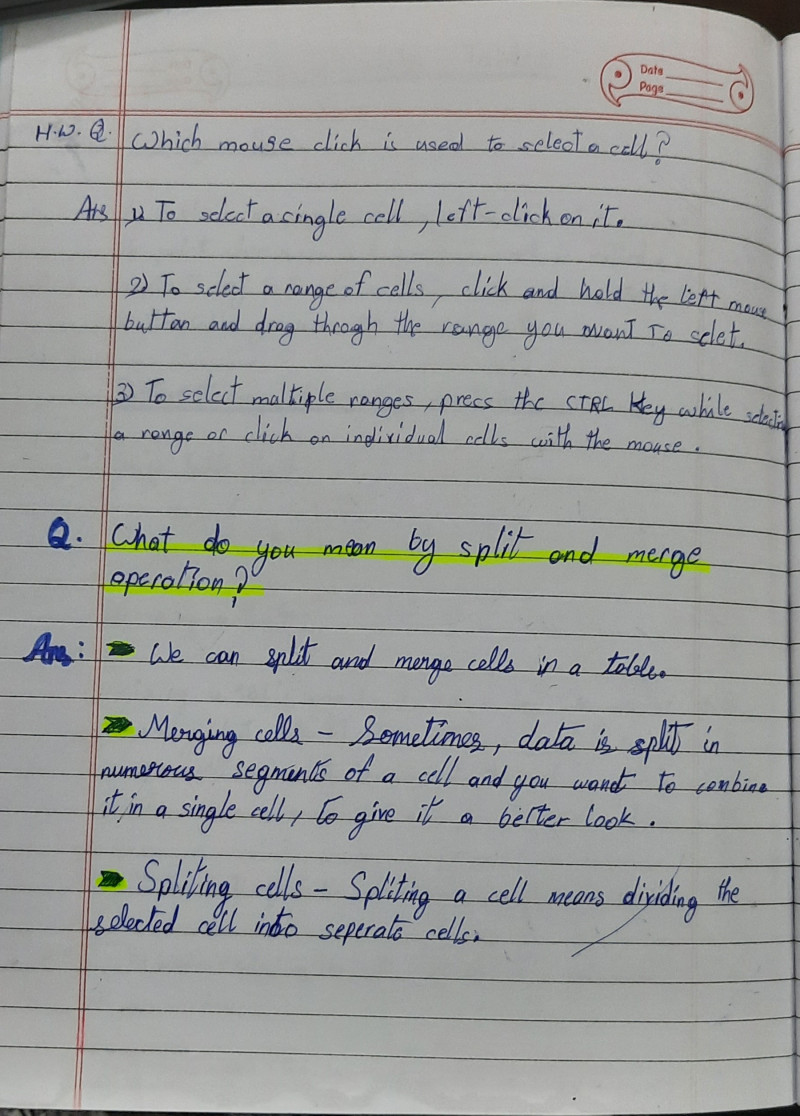 Date
Page
H.W. Q. Which mouse click is used to select a cell?
Ans 1) To select a single cell, left-click on it.
2) To select a range of cells, click and hold the left mouse
button and drag throgh the range you want To selet.
3) To select maltiple ranges, press the CTRL Key while selecting
a range or click on individual cells with the mouse.
Q. What do you mean by split and merge
operation?
Ans: We can split and merge cells in a table.
Merging cells - Sometimes, data is split in
numerous segments of a cell and you want to combine
it, in a single cell, to give it a better look.
Spliting cells - Spliting a cell means dividing the
selected cell into seperate cells.